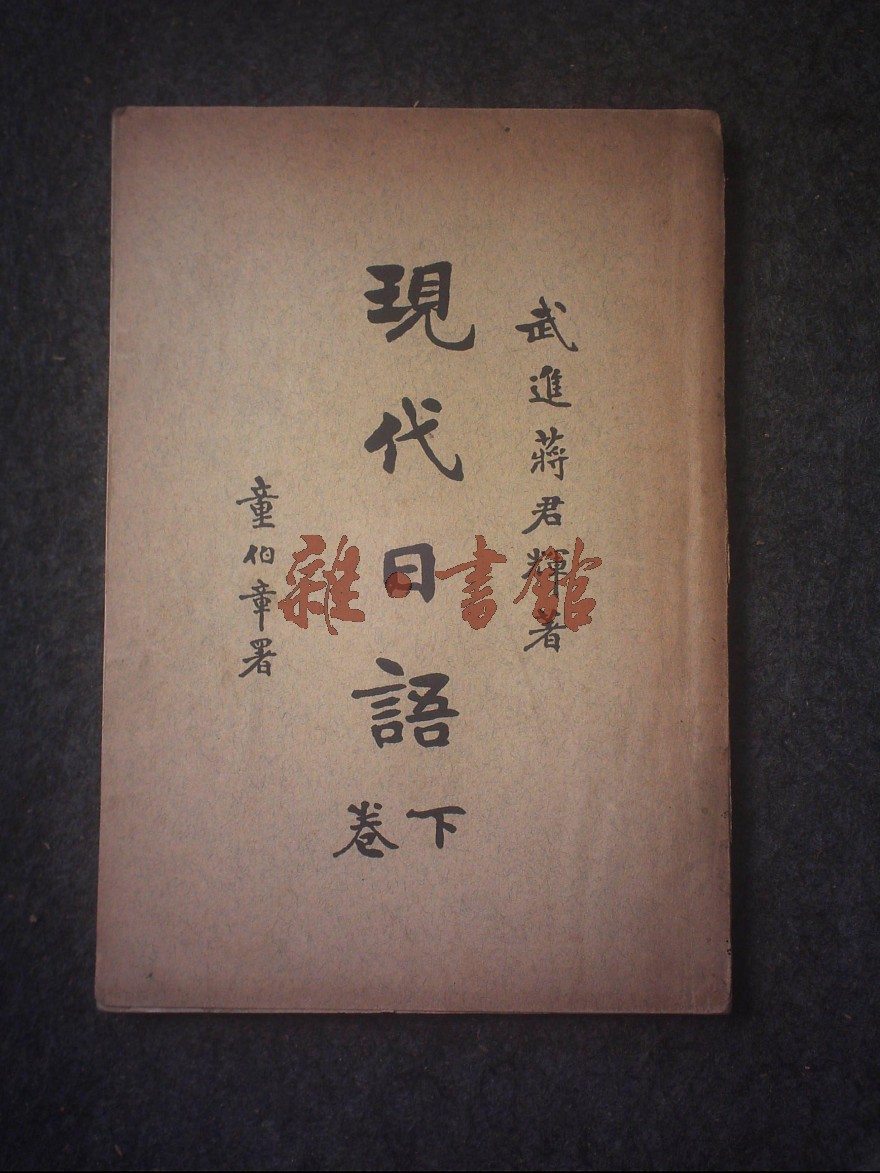 武進蔣君輝著
現代日語
下卷
童伯章署
雜·書館